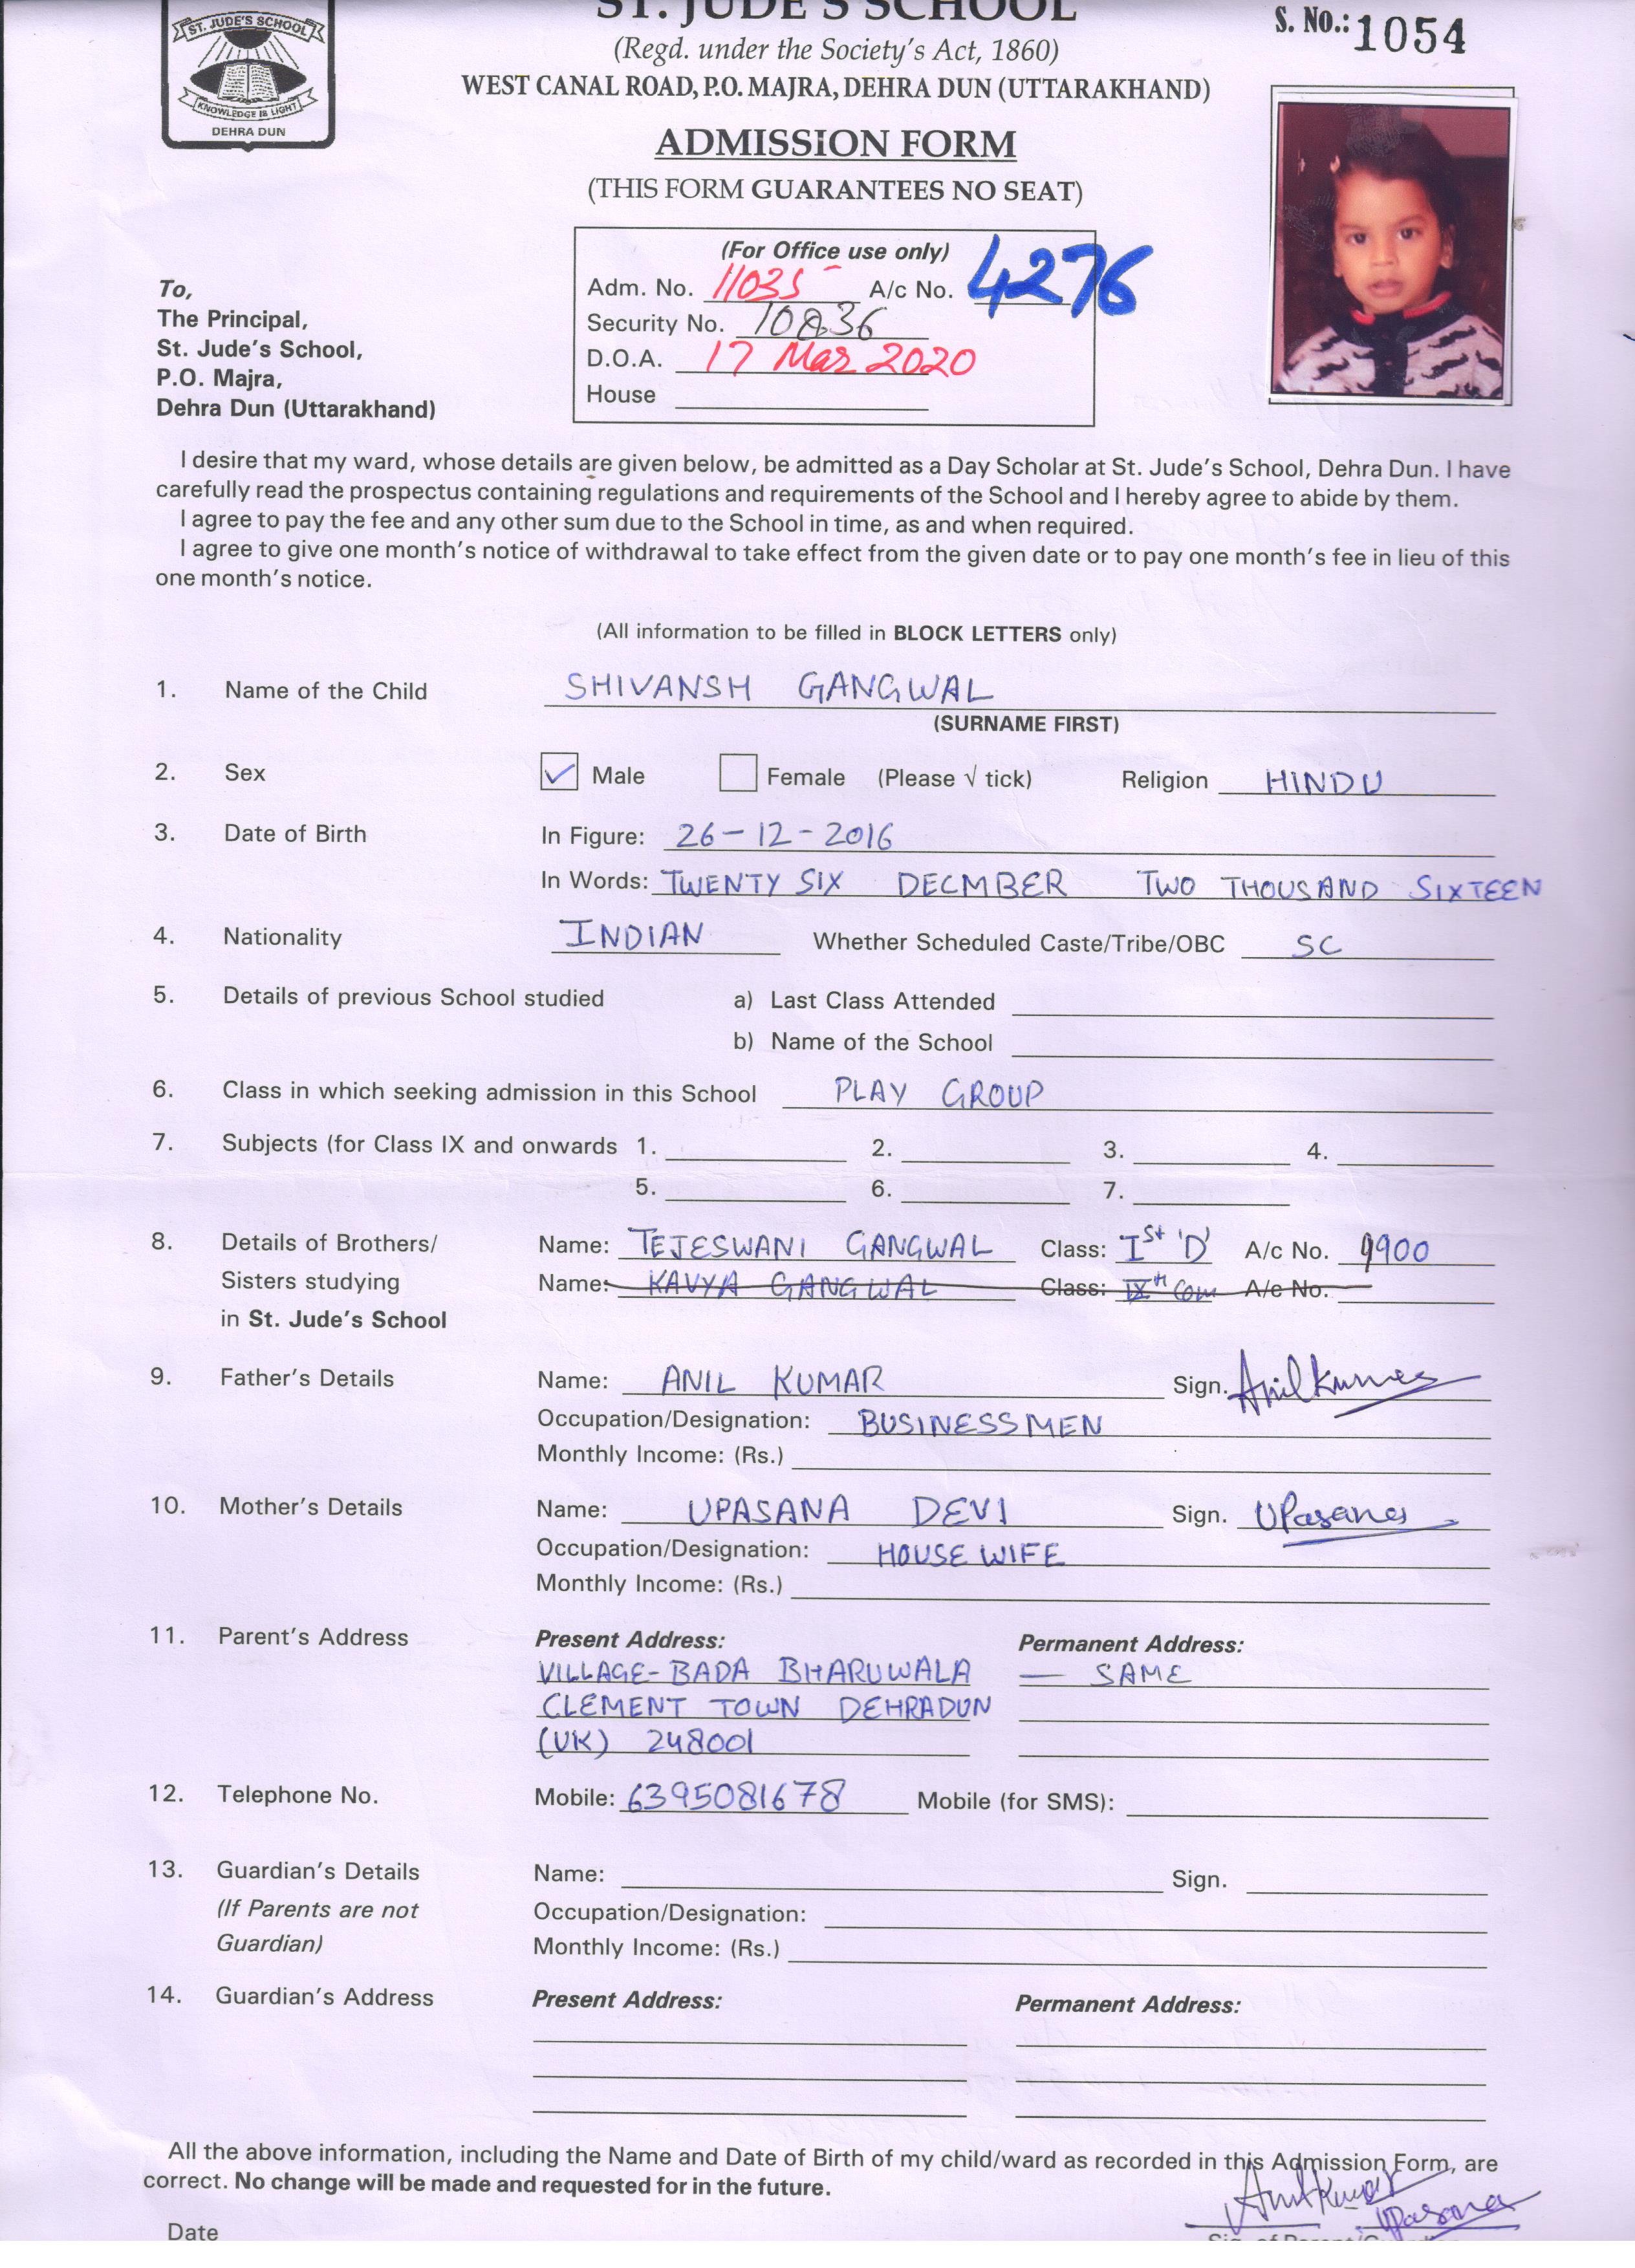 ST. JUDE'S SCHOOL
KNOWLEDGE IS LIGHT
DEHRA DUN
ST. JUDE'S SCHOOL
(Regd. under the Society's Act, 1860)
WEST CANAL ROAD, P.O. MAJRA, DEHRA DUN (UTTARAKHAND)
S. No.: 1054
ADMISSION FORM
(THIS FORM GUARANTEES NO SEAT)
(For Office use only)
Adm. No. 11035 A/c No. 4276
Security No. 10836
D.O.A. 17 Mar 2020
House
To,
The Principal,
St. Jude's School,
P.O. Majra,
Dehra Dun (Uttarakhand)
I desire that my ward, whose details are given below, be admitted as a Day Scholar at St. Jude's School, Dehra Dun. I have
carefully read the prospectus containing regulations and requirements of the School and I hereby agree to abide by them.
I agree to pay the fee and any other sum due to the School in time, as and when required.
I agree to give one month's notice of withdrawal to take effect from the given date or to pay one month's fee in lieu of this
one month's notice.
(All information to be filled in BLOCK LETTERS only)
1. Name of the Child SHIVANSH GANGWAL
(SURNAME FIRST)
2. Sex ✓ Male Female (Please √ tick) Religion HINDU
3. Date of Birth In Figure: 26-12-2016
In Words: TWENTY SIX DECMBER TWO THOUSAND SIXTEEN
4. Nationality INDIAN Whether Scheduled Caste/Tribe/OBC SC
5. Details of previous School studied a) Last Class Attended
b) Name of the School
6. Class in which seeking admission in this School PLAY GROUP
7. Subjects (for Class IX and onwards 1. 2. 3. 4.
5. 6. 7.
8. Details of Brothers/ Name: TEJESWANI GANGWAL Class: Ist 'D' A/c No. 9900
Sisters studying Name: KAVYA GANGWAL Class: IXth Com A/c No.
in St. Jude's School
9. Father's Details Name: ANIL KUMAR Sign. Anil Kumar
Occupation/Designation: BUSINESSMEN
Monthly Income: (Rs.)
10. Mother's Details Name: UPASANA DEVI Sign. Upasana
Occupation/Designation: HOUSE WIFE
Monthly Income: (Rs.)
11. Parent's Address Present Address: Permanent Address:
VILLAGE-BADA BHARUWALA — SAME
CLEMENT TOWN DEHRADUN
(UK) 248001
12. Telephone No. Mobile: 6395081678 Mobile (for SMS):
13. Guardian's Details Name: Sign.
(If Parents are not Occupation/Designation:
Guardian) Monthly Income: (Rs.)
14. Guardian's Address Present Address: Permanent Address:
All the above information, including the Name and Date of Birth of my child/ward as recorded in this Admission Form, are
correct. No change will be made and requested for in the future.
Anil Kumar
Upasana
Date